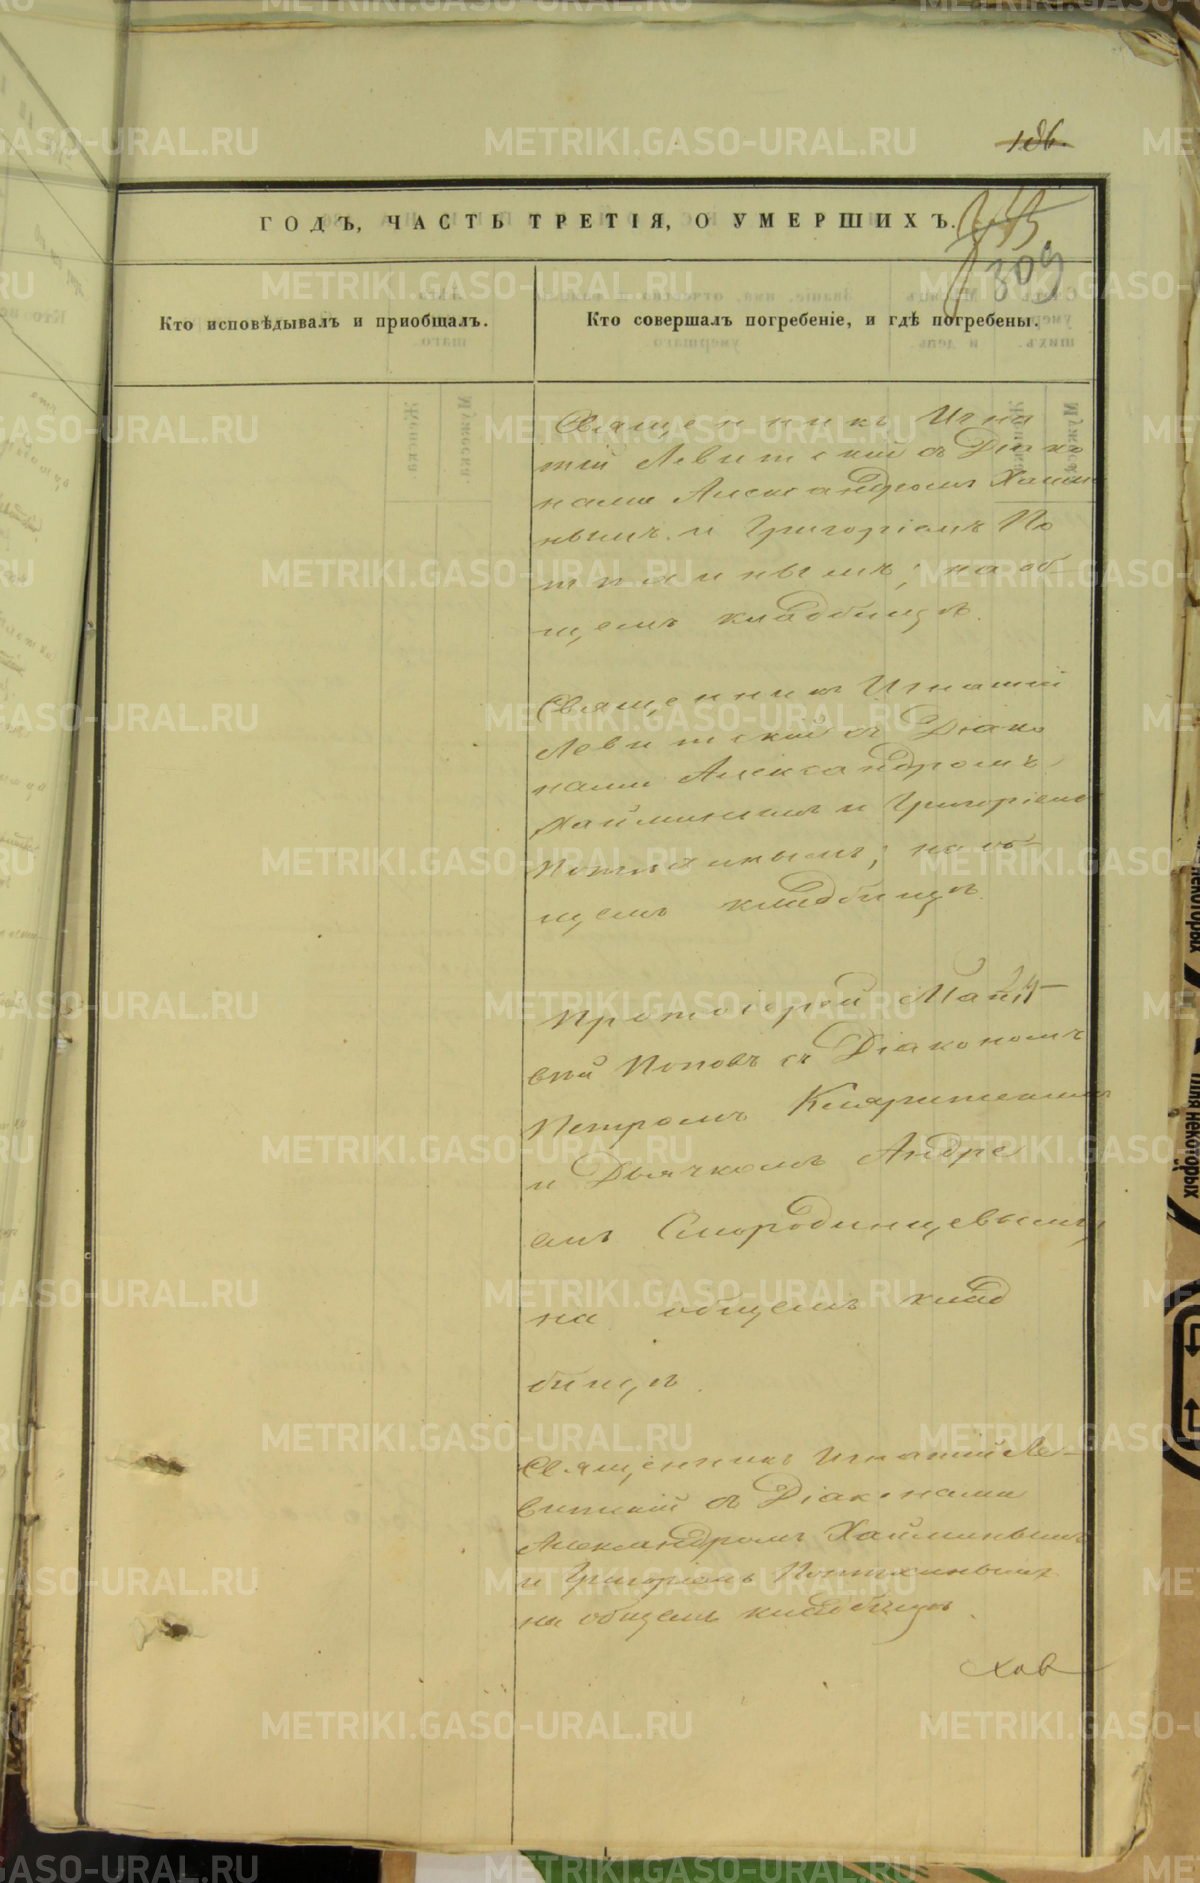 186.
ГОДЪ, ЧАСТЬ ТРЕТІЯ, О УМЕРШИХЪ.
309
Кто исповѣдывалъ и пріобщалъ.
Кто совершалъ погребеніе, и гдѣ погребены.
Священникъ Игна
тій Левитскій съ Діако
нами Александромъ
и Григоріемъ По
на об
щемъ кладбищѣ.
Священникъ Игнатій
Левитскій съ Діако
нами Александромъ
и Григоріемъ
на об
щемъ кладбищѣ.
Протоіерей Мат
вѣй Поповъ съ Діакономъ
Петромъ
и Дьячкомъ Андре
емъ Смородинцевымъ,
на общемъ клад
бищѣ.
Священникъ Игнатій Ле-
витскій съ Діаконами
Александромъ Хайминымъ
и Григоріемъ
на общемъ кладбищѣ.
METRIKI.GASO-URAL.RU